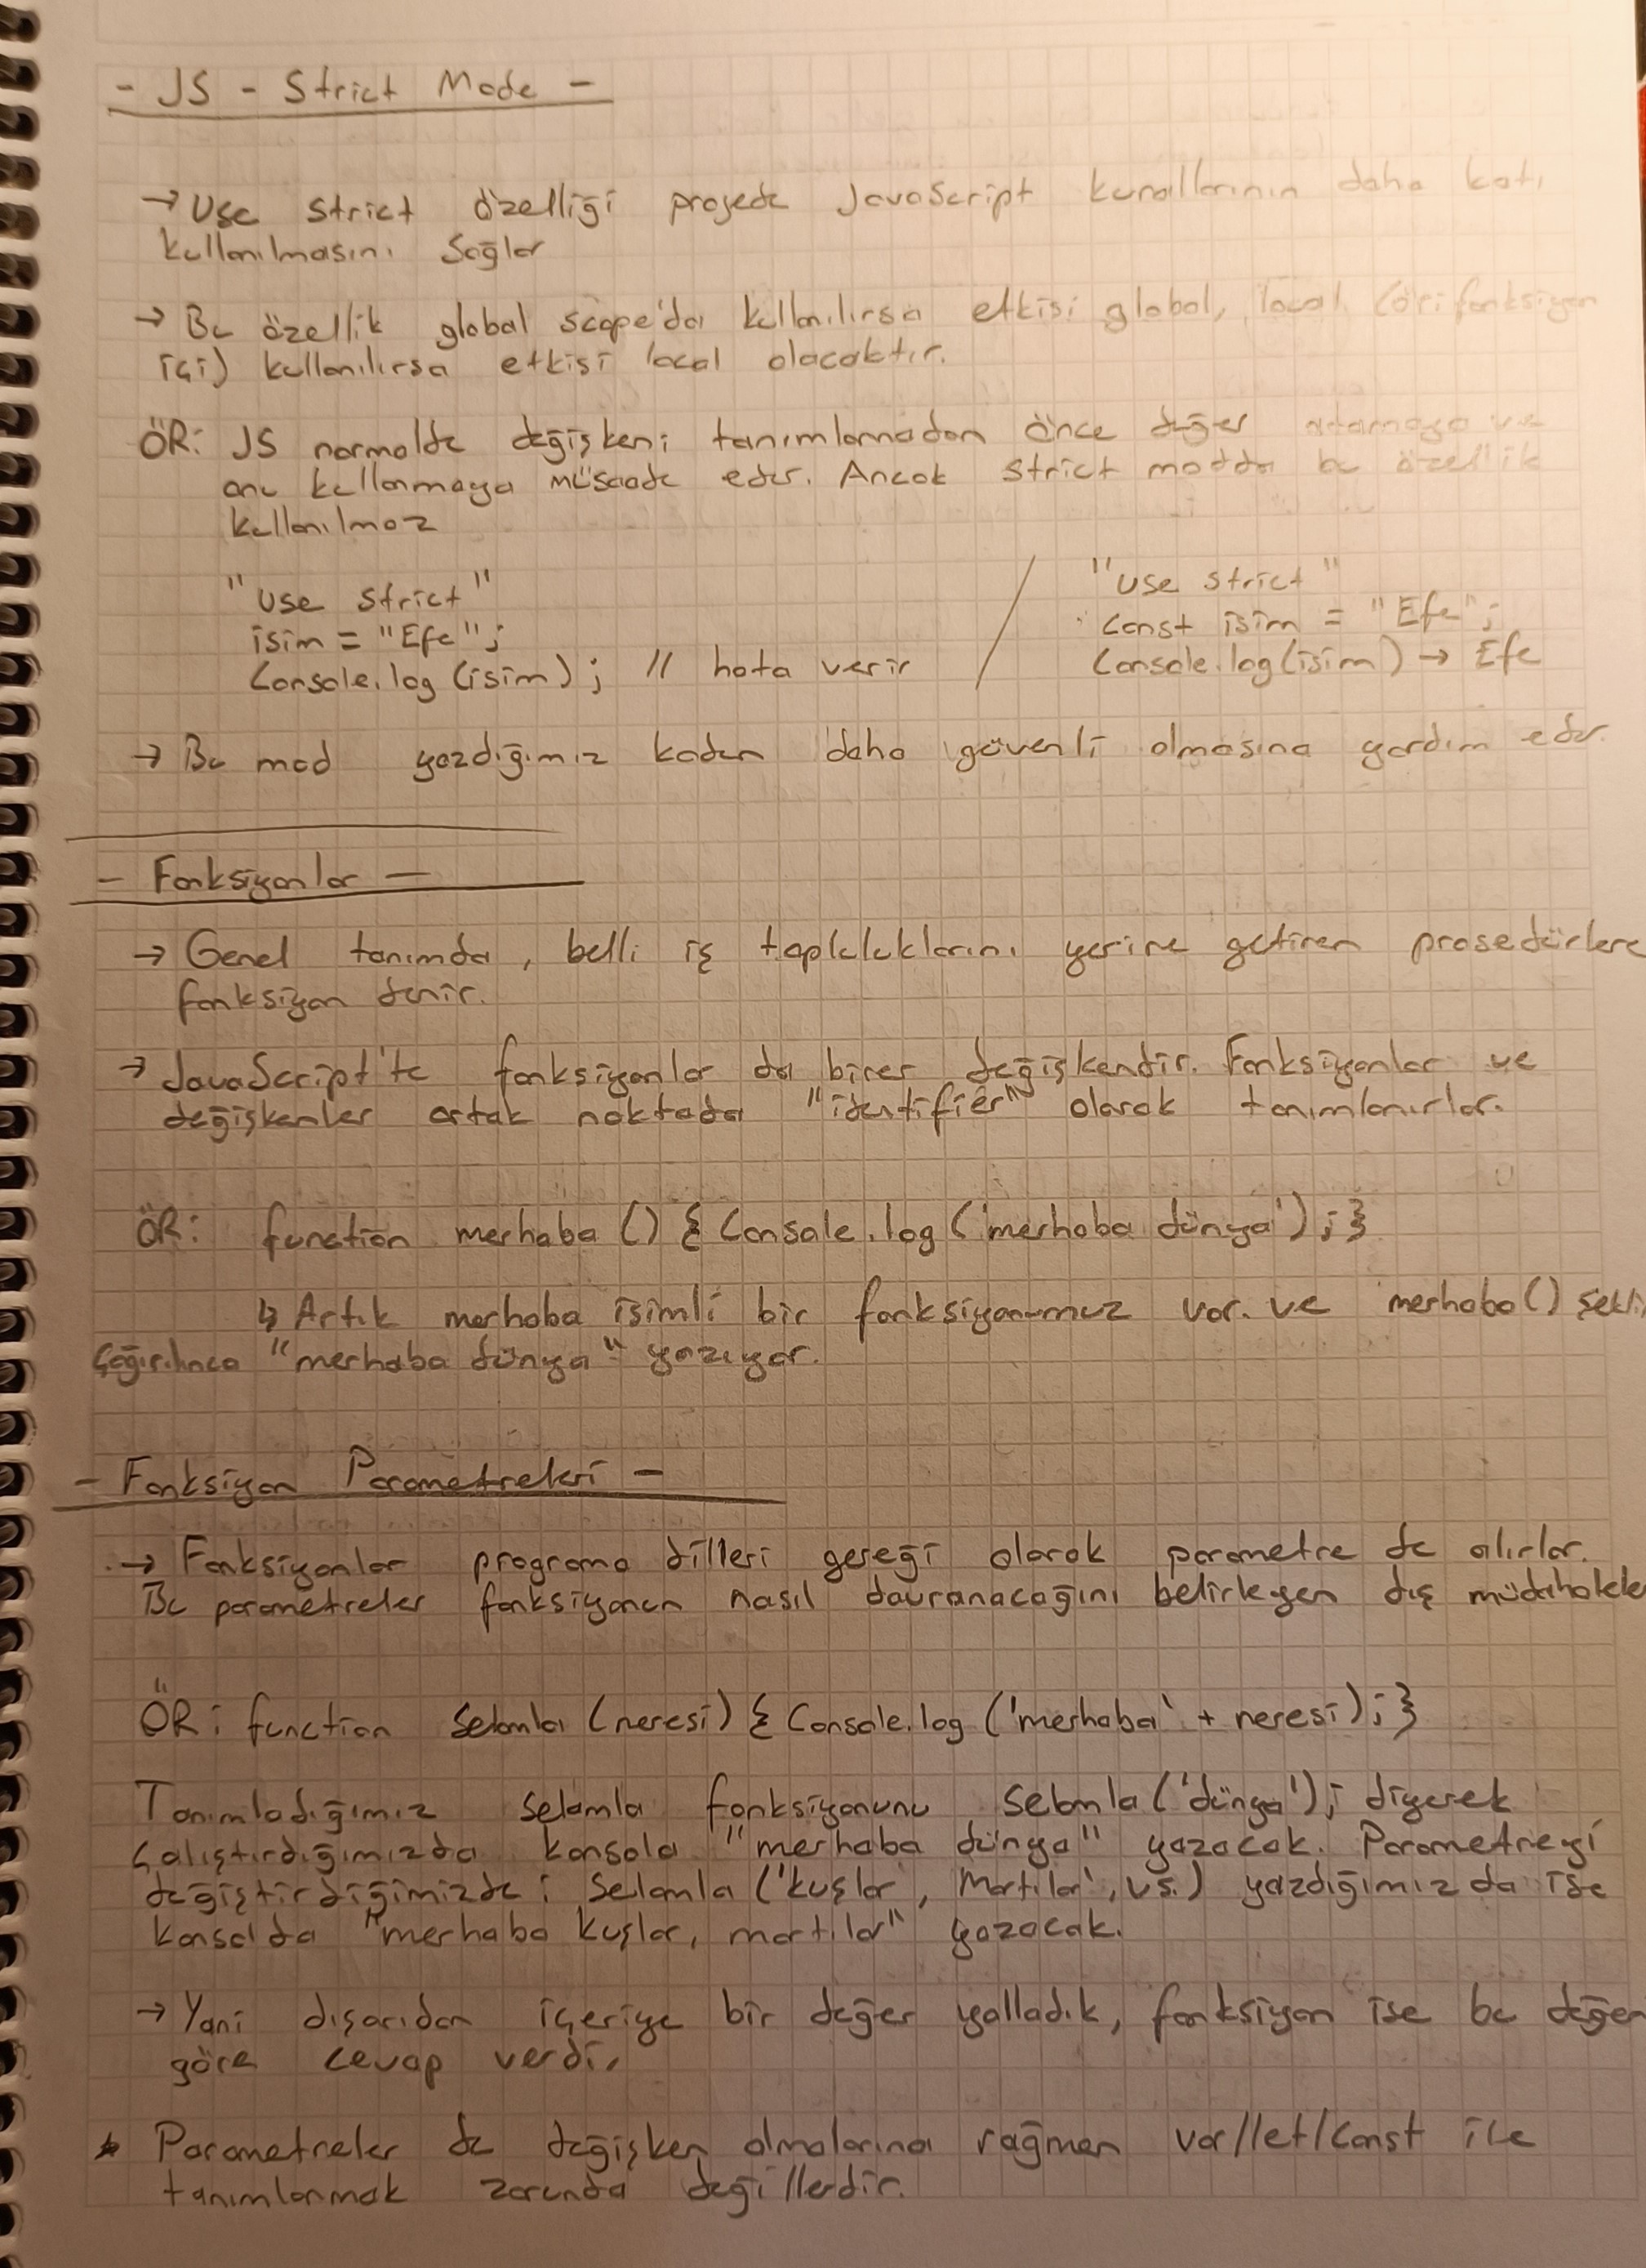 - JS - Strict Mode -
→ Use strict özelliği projede JavaScript kurallarının daha katı
kullanılmasını sağlar
→ Bu özellik global scope'da kullanılırsa etkisi global, local (ör: fonksiyon
içi) kullanılırsa etkisi local olacaktır.
ÖR: JS normalde değişkeni tanımlamadan önce değer atamaya ve
onu kullanmaya müsaade eder. Ancak strict modda bu özellik
kullanılmaz
"use strict"
isim = "Efe";
Console.log(isim); // hata verir
"use strict"
Const isim = "Efe";
Console.log(isim) → Efe
→ Bu mod yazdığımız kodun daha güvenli olmasına yardım eder.
- Fonksiyonlar -
→ Genel tanımda, belli iş toplulukların yerine getiren prosedürlere
fonksiyon denir.
→ JavaScript'te fonksiyonlar da birer değişkendir. Fonksiyonlar ve
değişkenler ortak noktada "identifier" olarak tanımlanırlar.
ÖR: function merhaba () { Console.log ('merhaba dünya'); }
↳ Artık merhaba isimli bir fonksiyonumuz var. ve merhaba()
çağırılınca "merhaba dünya" yazıyor.
- Fonksiyon Parametreleri -
→ Fonksiyonlar programa dilleri gereği olarak parametre de alırlar.
Bu parametreler fonksiyonun nasıl davranacağını belirleyen dış müdahalele
ÖR: function selamla (neresi) { Console.log ('merhaba' + neresi); }
Tanımladığımız selamla fonksiyonunu selamla('dünya'); diyerek
çalıştırdığımızda konsola "merhaba dünya" yazacak. Parametreyi
değiştirdiğimizde; selamla ('kuşlar', 'Martılar', vs.) yazdığımızda ise
konsolda "merhaba kuşlar, martılar" yazacak.
→ Yani dışarıdan içeriye bir değer yolladık, fonksiyon ise bu değer
göre cevap verdi.
* Parametreler de değişken olmalarına rağmen var/let/const ile
tanımlanmak zorunda değillerdir.